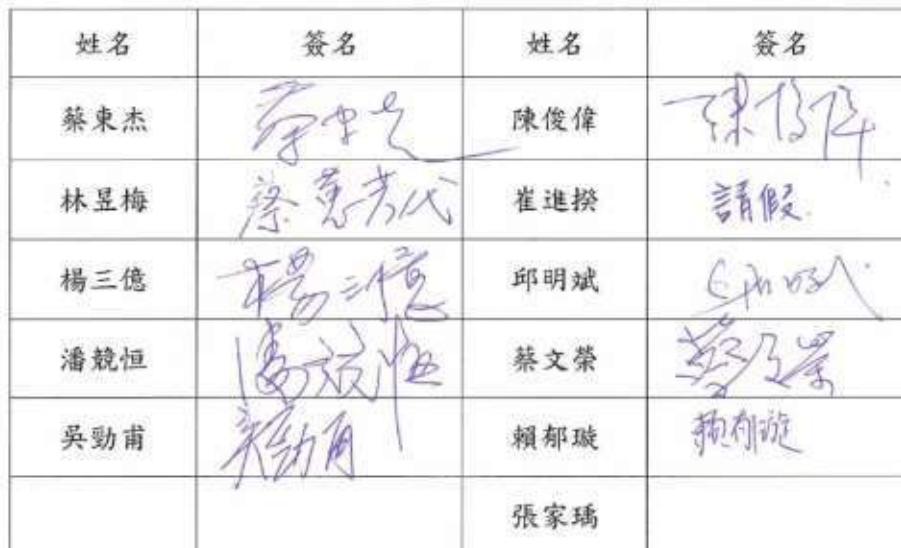 姓名 簽名 姓名 簽名
蔡東杰 蔡東杰 陳俊偉 陳俊偉
林昱梅 蔡蕙芳代 崔進揆 請假
楊三億 楊三億 邱明斌 邱明斌
潘競恒 潘競恒 蔡文榮 蔡文榮
吳勁甫 吳勁甫 賴郁璇 賴郁璇
張家瑀